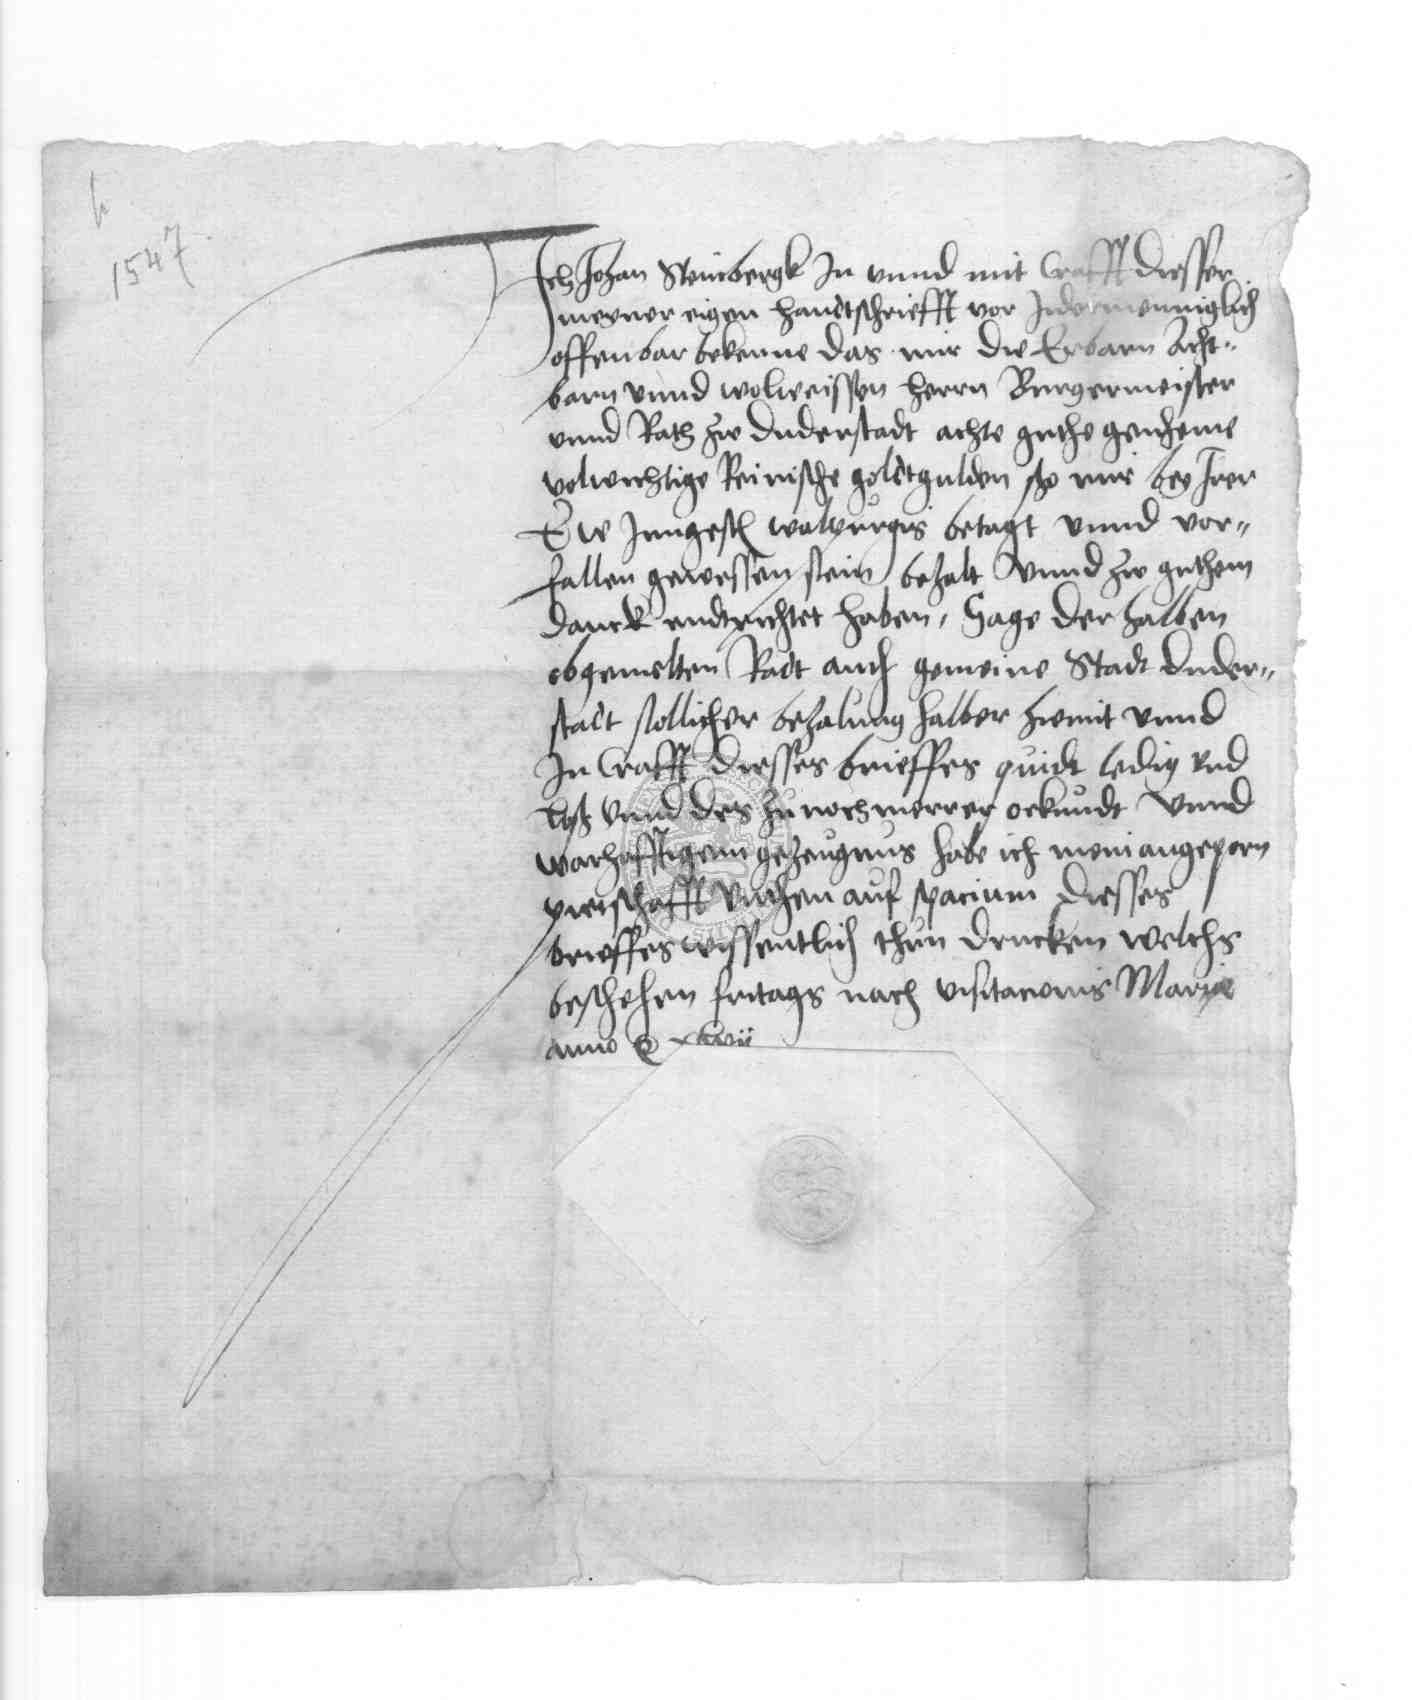 1547
Ich Johan Steinbergk In vnnd mit Crafft diesser
meyner eigen handtschriefft vor Jdermenniglich
offenbar bekenne das mir die Erbarn Acht-
barn vnnd wolweissen herrn Burgermeister
vnnd Rath zw Duderstadt achte guthe genheme
volwichtige Reinische goltgulden so mir bey Irer
E W Jungest walpurgis betagt vnnd vor-
fallen gewessen sein bezalt vnnd zw guthem
danck endtrichtet haben, Sage der halben
obgemelten Radt auch gemeine Stadt Duder-
stadt sollicher bezalung halber hiemit vnnd
In Crafft diesses brieffes quidt ledig vnd
loss vnnd des zu noch merrer orkundt vnnd
warhafftigem gezeugnus habe ich mein angeporn
pietschafft vnthen auf spacium diesses
brieffes wissentlich thun drucken welchs
beschehen fritags nach visitacionis Marie
anno xlvii